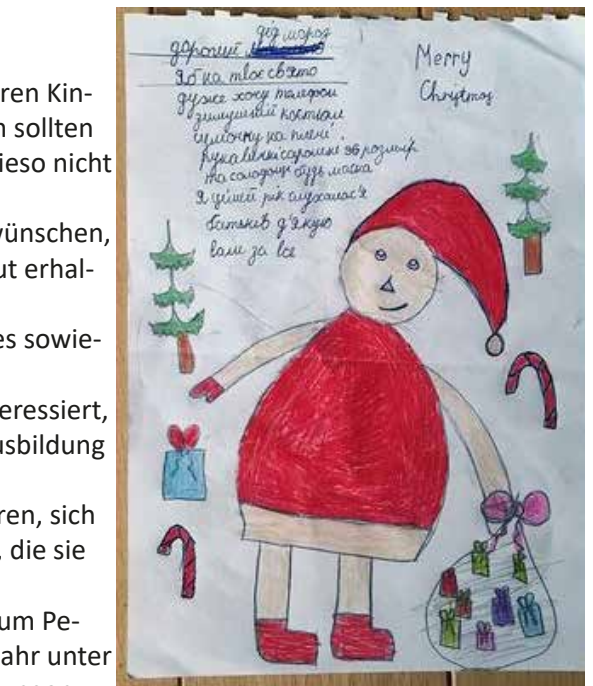 ren Kin-
sollten
ieso nicht
wünschen,
ut erhal-
es sowie-
eressiert,
usbildung
ren, sich
, die sie
um Pe-
ahr unter
дід мороз
дорогий
я на твоє свято
дуже хочу телефон
зимушний костюм
сумочку на плечі
рукавички сарошке 36 розмір
та солодощі будь ласка
Я цілий рік слухалася
батьків дякую
вам за все
Merry
Chrystmas